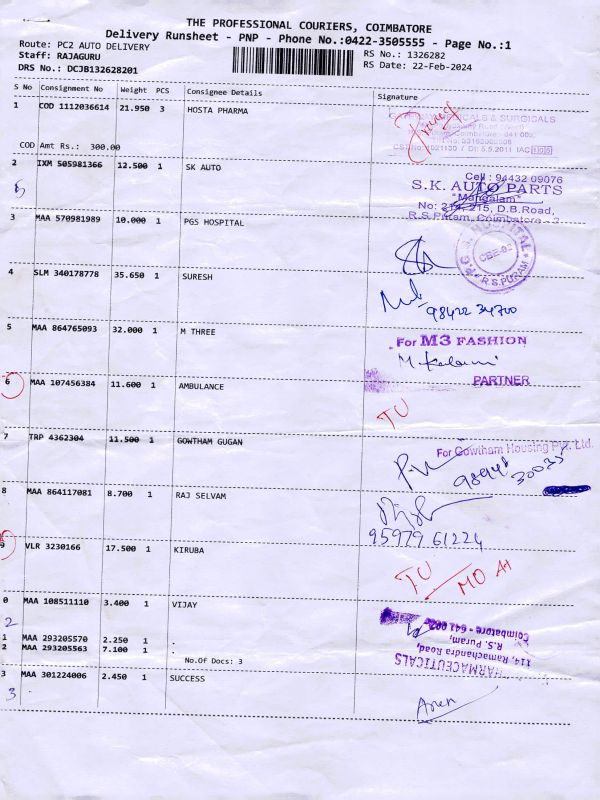 THE PROFESSIONAL COURIERS, COIMBATORE
Delivery Runsheet - PNP - Phone No.:0422-3505555 - Page No.:1
Route: PC2 AUTO DELIVERY
RS No.: 1326282
Staff: RAJAGURU
RS Date: 22-Feb-2024
DRS No.: DCJB132628201
S No Consignment No Weight PCS Consignee Details Signature
1 COD 1112036614 21.950 3 HOSTA PHARMA
COD Amt Rs.: 300.00
2 IXM 505981366 12.500 1 SK AUTO
Cell: 94432 09076
S.K. AUTO PARTS
"Mangalam"
No: 214, 215, D.B.Road,
R.S.Puram, Coimbatore - 2
3 MAA 570981989 10.000 1 PGS HOSPITAL
HOSPITAL
CBE-02
R.S.PURAM
4 SLM 340178778 35.650 1 SURESH
98422 34700
5 MAA 864765093 32.000 1 M THREE
For M3 FASHION
PARTNER
6 MAA 107456384 11.600 1 AMBULANCE
TU
7 TRP 4362304 11.500 1 GOWTHAM GUGAN
For Gowtham Housing Pvt. Ltd.
8 MAA 864117081 8.700 1 RAJ SELVAM
95979 61224
9 VLR 3230166 17.500 1 KIRUBA
TU
0 MAA 108511110 3.400 1 VIJAY
2
1 MAA 293205570 2.250 1 .
2 MAA 293205563 7.100 1 .
No.Of Docs: 3
114, Ramachandra Road,
R.S. Puram,
Coimbatore - 641 002
3 MAA 301224006 2.450 1 SUCCESS
3